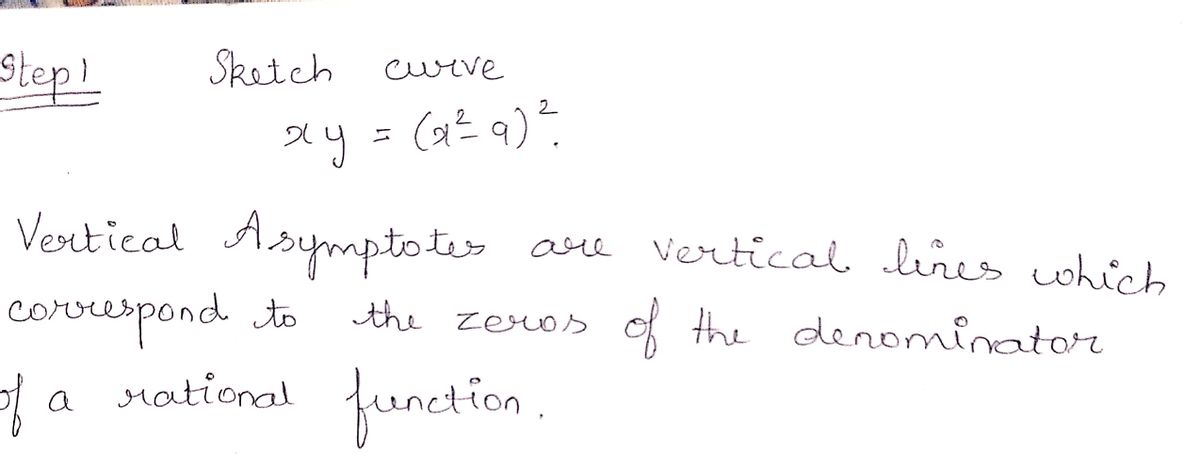 Step 1 Sketch curve
xy = (x² - 9)².
Vertical Asymptotes are vertical lines which
correspond to the zeros of the denominator
of a rational function.